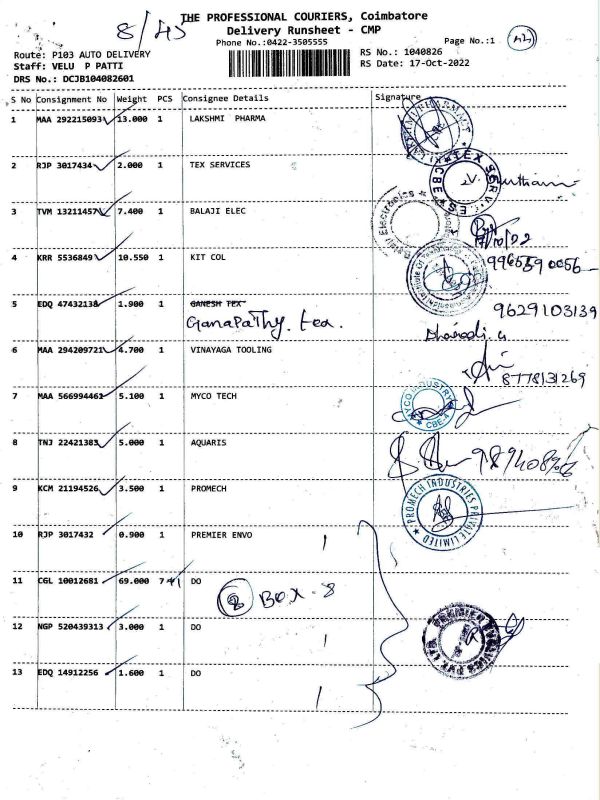 8/45
THE PROFESSIONAL COURIERS, Coimbatore
Delivery Runsheet - CMP
Phone No.:0422-3505555
Page No.:1
Route: P103 AUTO DELIVERY
RS No.: 1040826
Staff: VELU P PATTI
RS Date: 17-Oct-2022
DRS No.: DCJB104082601
S No Consignment No Weight PCS Consignee Details Signature
1 MAA 292215093 13.000 1 LAKSHMI PHARMA
2 RJP 3017434 2.000 1 TEX SERVICES
TEX SERVICES CBE
3 TVM 13211457 7.400 1 BALAJI ELEC
Electronics
17/10/22
4 KRR 5536849 10.550 1 KIT COL
9965590056
5 EDQ 47432138 1.900 1 GANESH TEX
Ganapathy. tex.
9629103139
6 MAA 294209721 4.700 1 VINAYAGA TOOLING
8778131269
7 MAA 566994462 5.100 1 MYCO TECH
MYCO INDUSTRY CBE-4
8 TNJ 22421383 5.000 1 AQUARIS
9 KCM 21194526 3.500 1 PROMECH
PROMECH INDUSTRIES PRIVATE LIMITED
10 RJP 3017432 0.900 1 PREMIER ENVO
1
11 CGL 10012681 69.000 7 1 DO
8 BOX - 8
12 NGP 520439313 3.000 1 DO
1
13 EDQ 14912256 1.600 1 DO
1